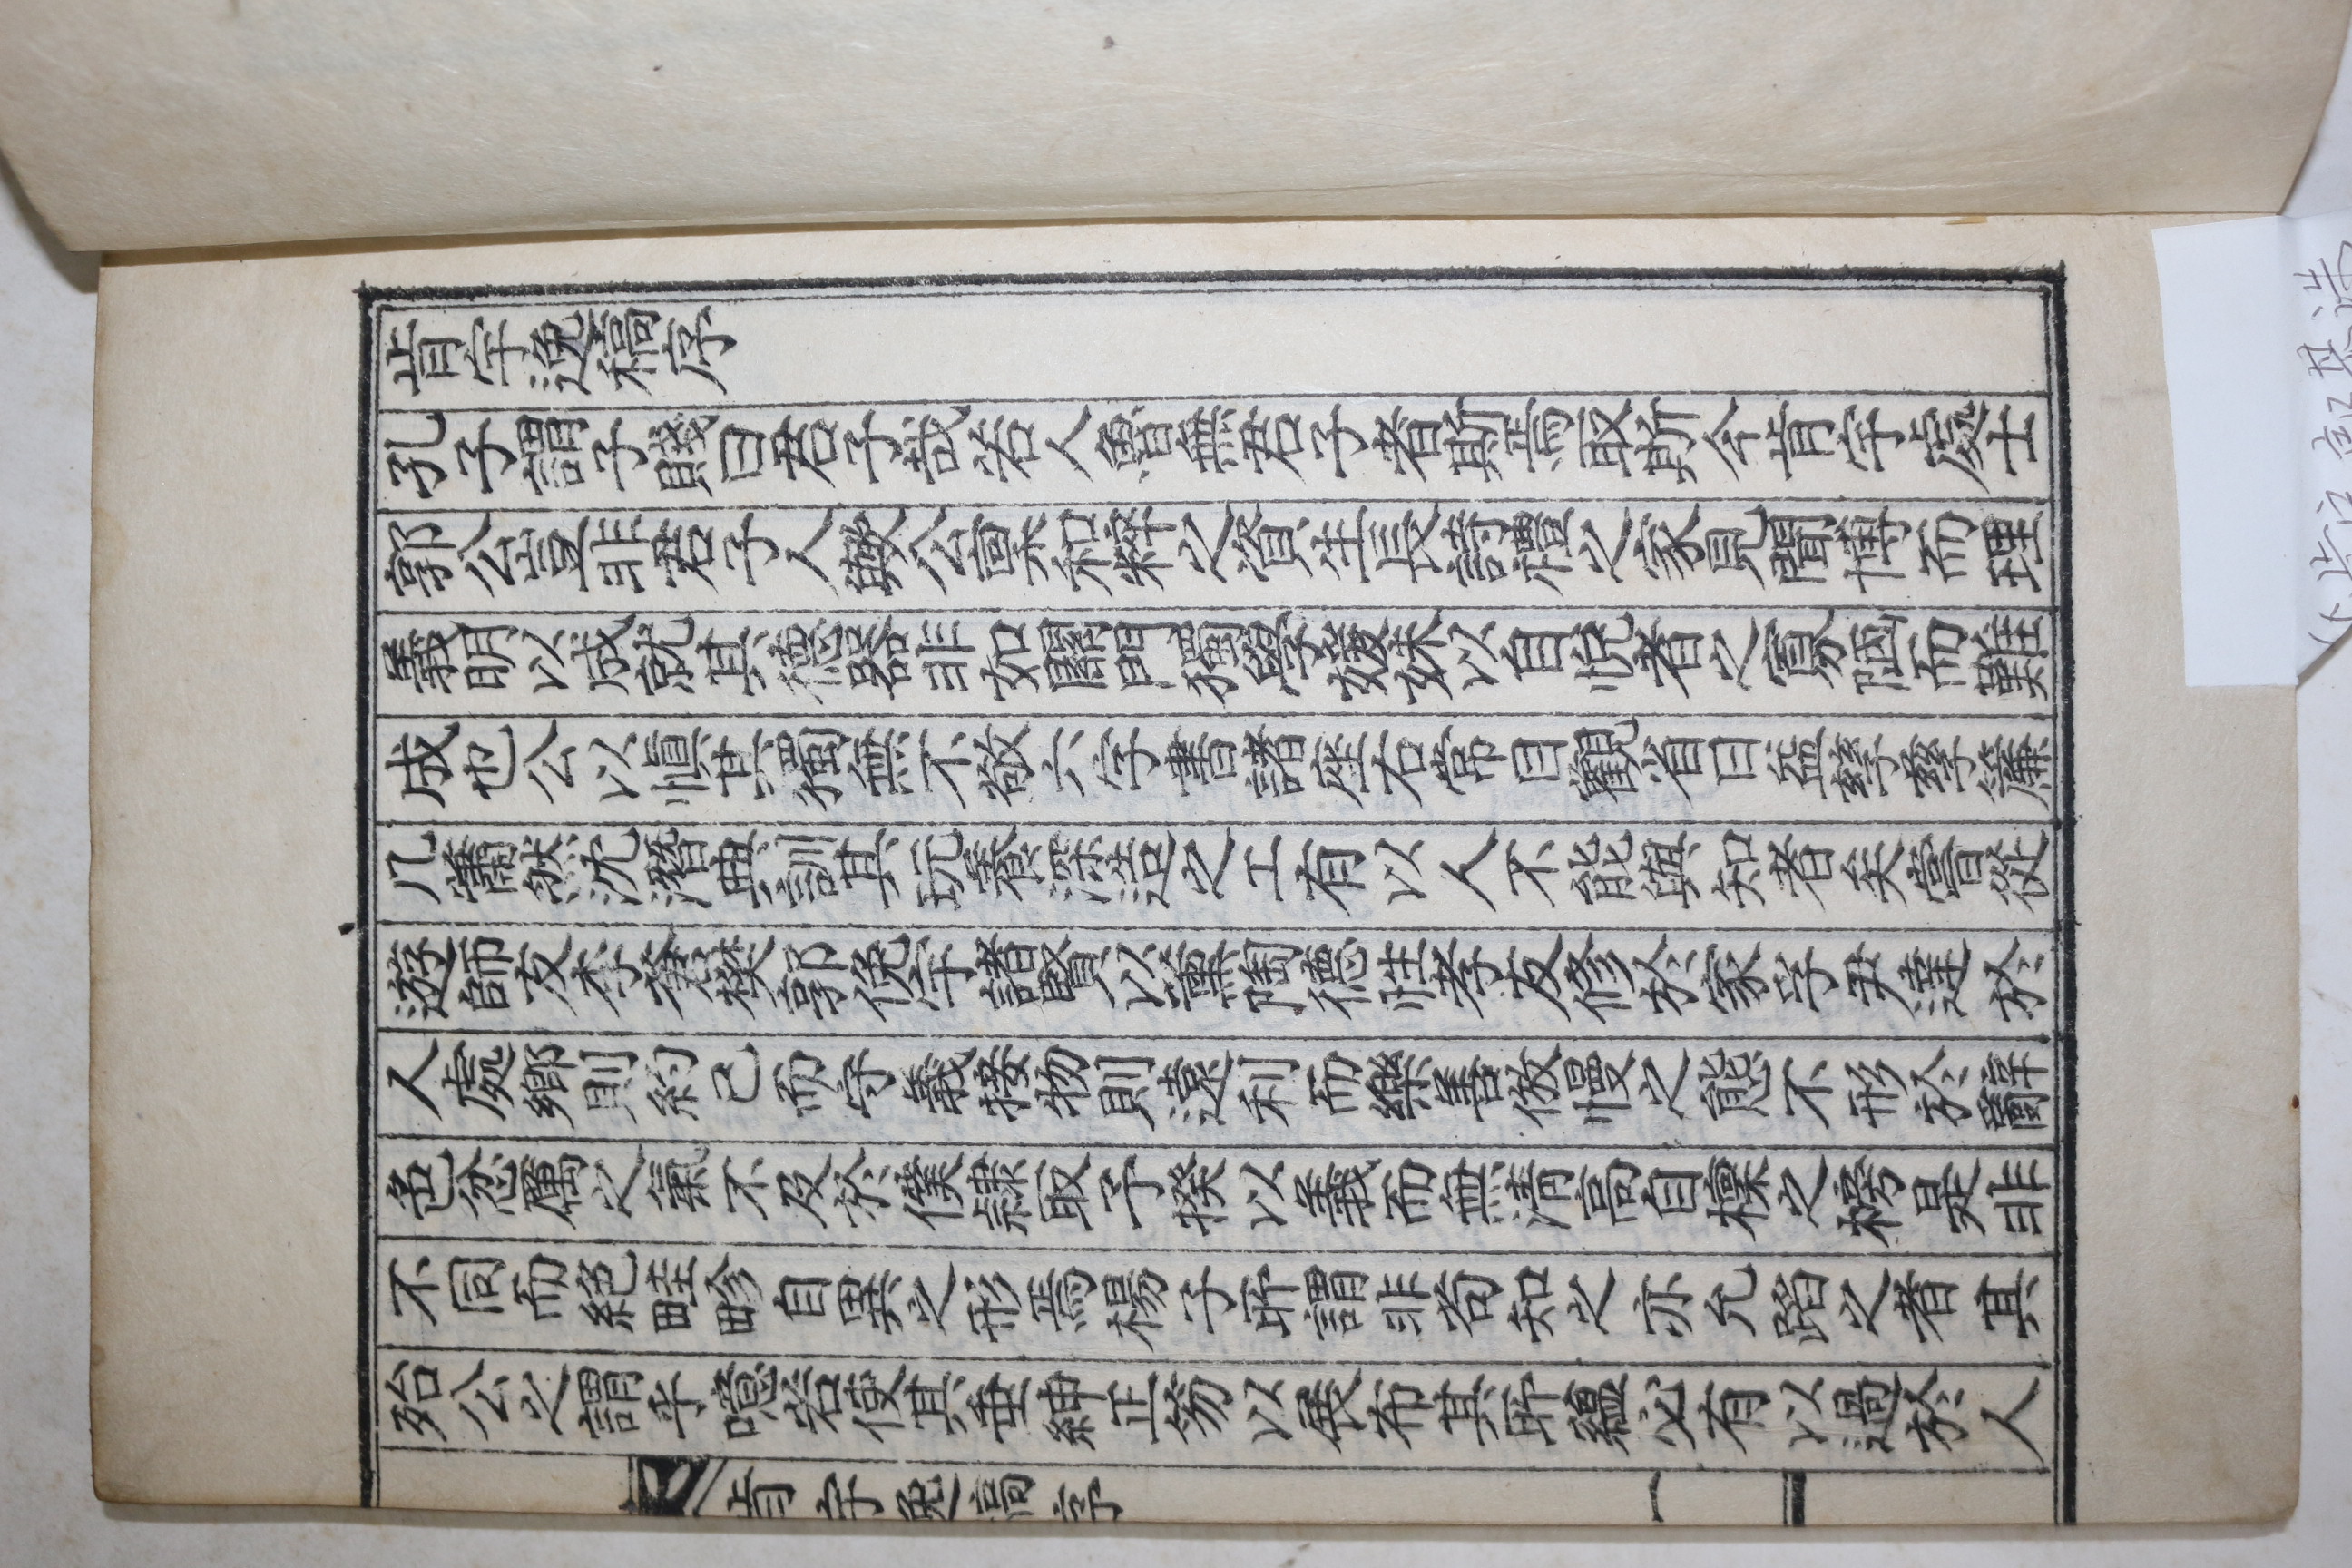 肯宇逸稿序
孔子謂子賤曰君子哉若人魯無君子者斯焉取斯今肯宇處士
郭公豈非君子人歟公稟和粹之資生長詩禮之家見聞博而理
義明以成就其德器非如闇門獨學媛姝以自悅者之寡陋而難
成也公以愼其獨無不敬六字書諸座右常目觀省日益孶孶簾
几蕭然沈潛典訓其玩養深造之工有以人不能與知者矣嘗從
遊師友李郭俛宇諸賢以薰陶德性孝友修於家孚尹達於
人處鄕則約己而守義接物則遠利而樂善傲慢之態不形於辭
色忿厲之氣不及於僕隷取予揆以義而無淸高自標之是非
不同而絶畦畛自異之形焉楊子所謂非苟知之亦允蹈之者其
殆公之謂乎噫若使其垂紳正笏以展布其所蘊必有以過於人
肯宇逸稿序 一